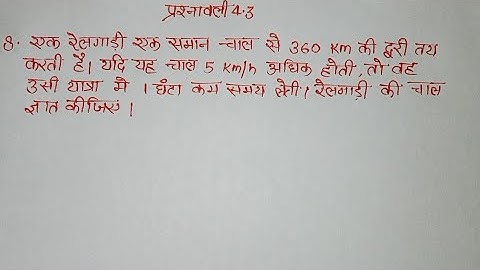 प्रश्नावली 4.3
8. एक रेलगाड़ी एक समान चाल से 360 km की दूरी तय
करती है। यदि यह चाल 5 km/h अधिक होती, तो वह
उसी यात्रा में 1 घंटा कम समय लेती। रेलगाड़ी की चाल
ज्ञात कीजिएं।